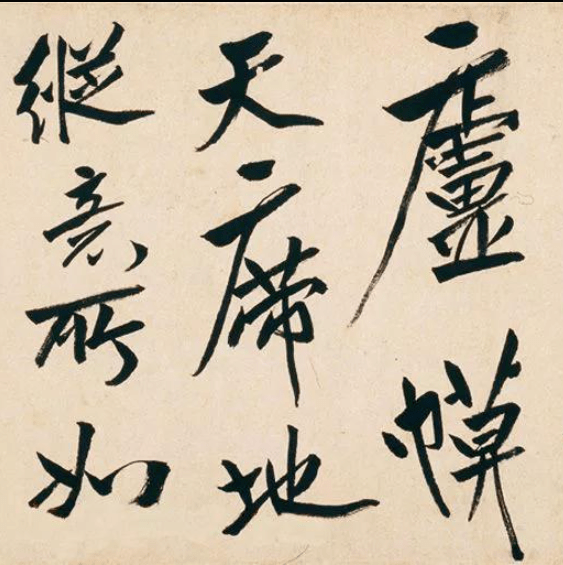 廬幙
天席地
縱意所如